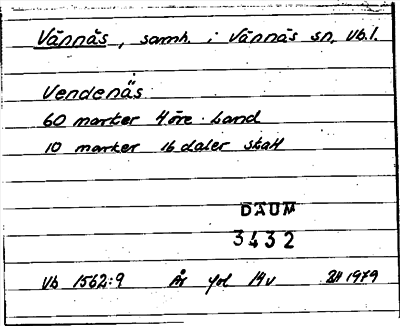 Vännäs, samh. i Vännäs sn, Vb.l.
Vendenäs
60 marker 4 öre Land
10 marker 16 daler skatt
DAUM
3432
Vb 1562:9 År fol 14v BH 1979